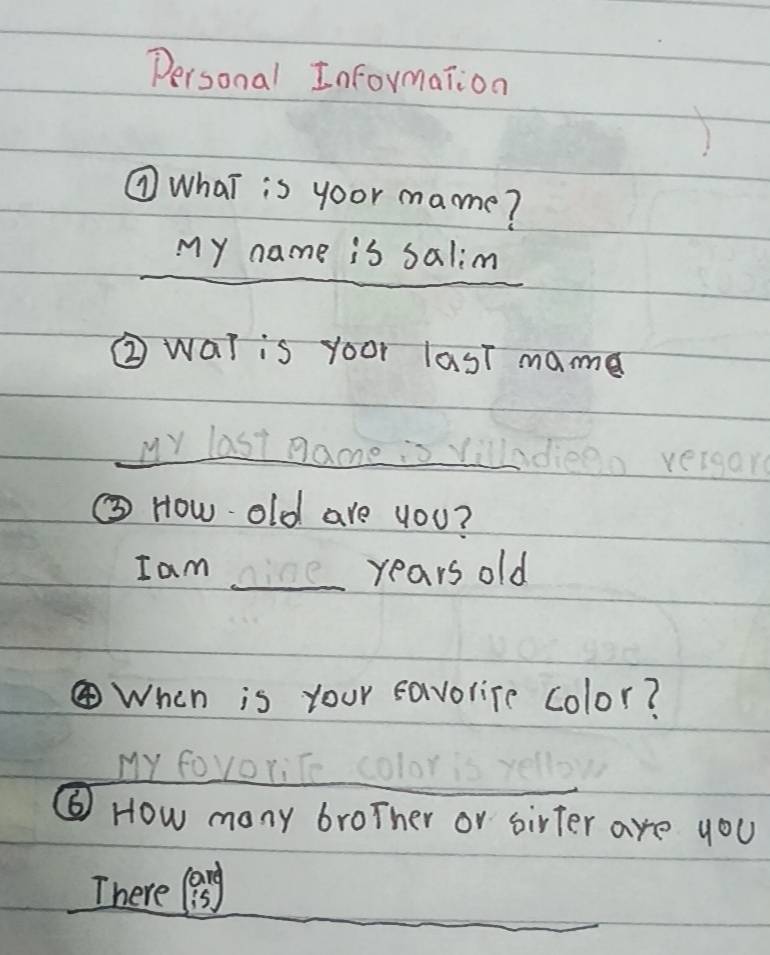 Personal Information
① What is yoor mame?
My name is salim
② Wat is yoor last mame
My last name is villadiego vergara
③ How old are you?
I am nine years old
④ When is your favorite color?
My fovorite color is yellow
⑥ How many brother or sirter are you
There (are
is)